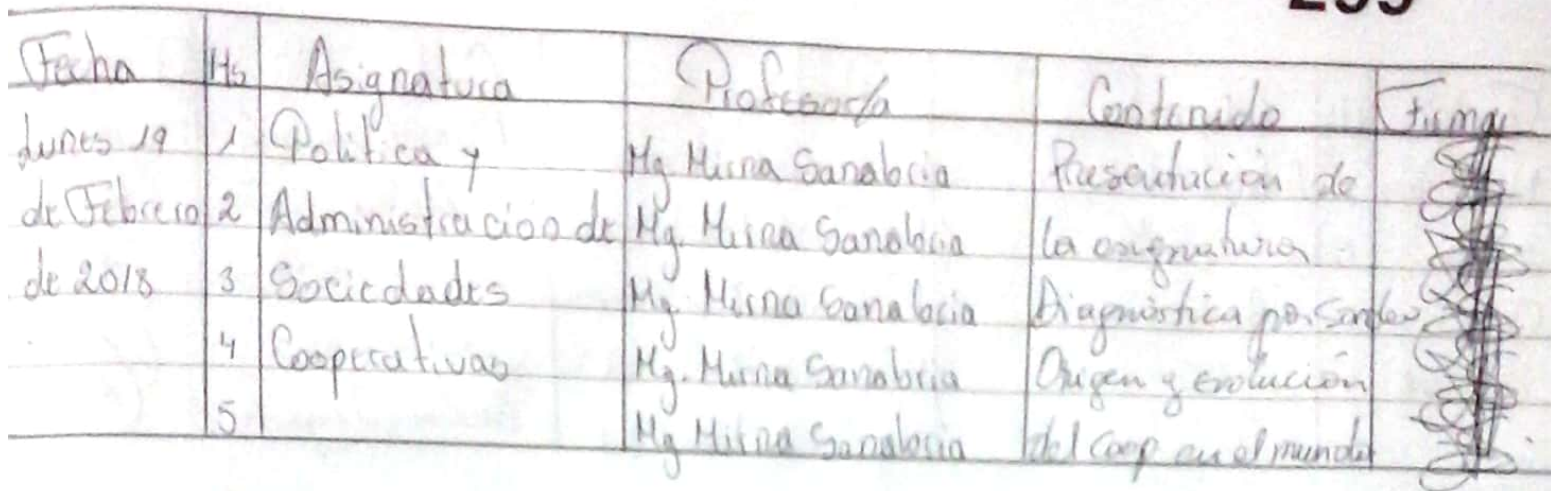 Fecha Hs Asignatura Profesor/a Contenido Firma
Lunes 19 1 Política y Mg Mirna Sanabria Presentación de
de Febrero 2 Administracion de Mg. Mirna Sanabria la asignatura
de 2018 3 Sociedades Mg. Mirna Sanabria Diagnóstica por
4 Cooperativas Mg. Mirna Sanabria Origen y evolución
5 Mg Mirna Sanabria del Coop en el mundo